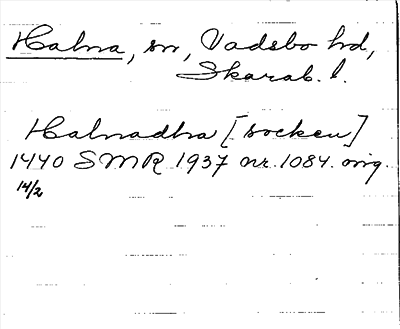 Halna, sn, Vadsbo hd,
Skarab. l.
Halnadha [socken]
1440 SMR 1937 nr. 1084. orig.
14/2